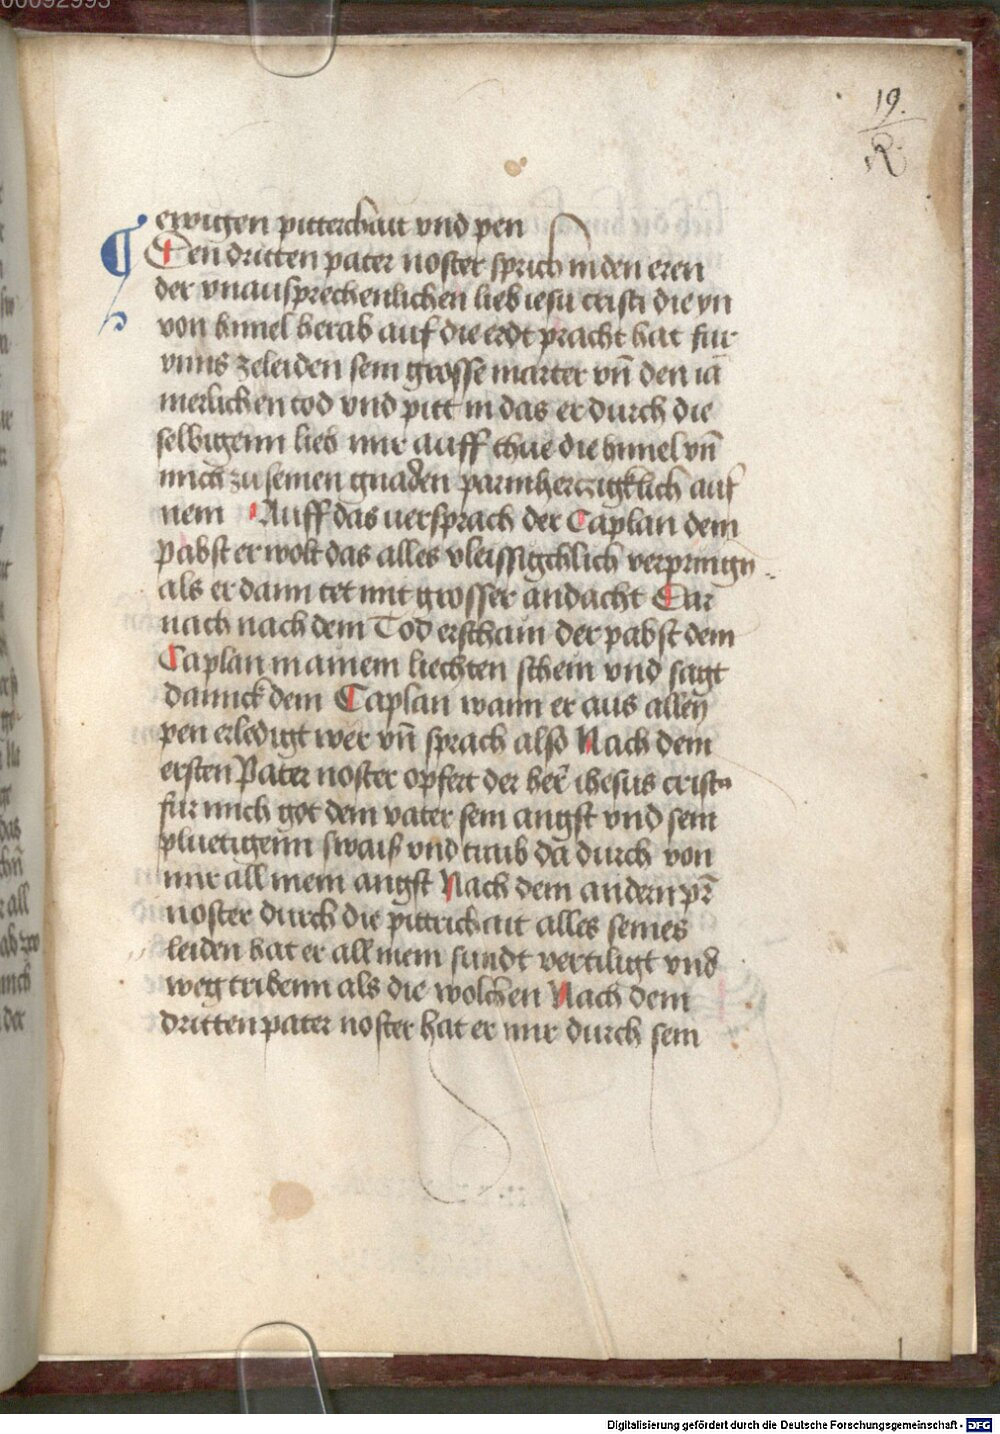 19.
R
ewigen pitterchait vnd pen
Den dritten pater noster sprich in den eren
der vnausprechenlichen lieb iesu cristi die yn
von himel herab auf die erdt pracht hat fur
vnns zeleiden sein grosse marter vn̄ den iā
merlichen tod vnd pitt in das er durch die
selbigenn lieb mir auff thue die himel vn̄
mich zu seinen gnaden parmhertzigklich auf
nem Auff das versprach der Caplan dem
pabst er wolt das alles vleissigchlich verpringn
als er dann tet mit grosser andacht Dar
nach nach dem Tod erschain der pabst dem
Caplan in ainem liechten schein vnd sagt
dannck dem Caplan wann er aus allen
pen erledigt wer vn̄ sprach also Nach dem
ersten Pater noster opfert der her̄ ihesus crist
fur mich got dem vater sein angst vnd sein
pluetigenn swaiß vnd traib da durch von
mir all mein angst Nach dem andern pr̄
noster durch die pittrichait alles seines
leiden hat er all mein sundt vertiligt vnd
weg tribenn als die wolchen Nach dem
dritten pater noster hat er mir durch sein
Digitalisierung gefördert durch die Deutsche Forschungsgemeinschaft - DFG